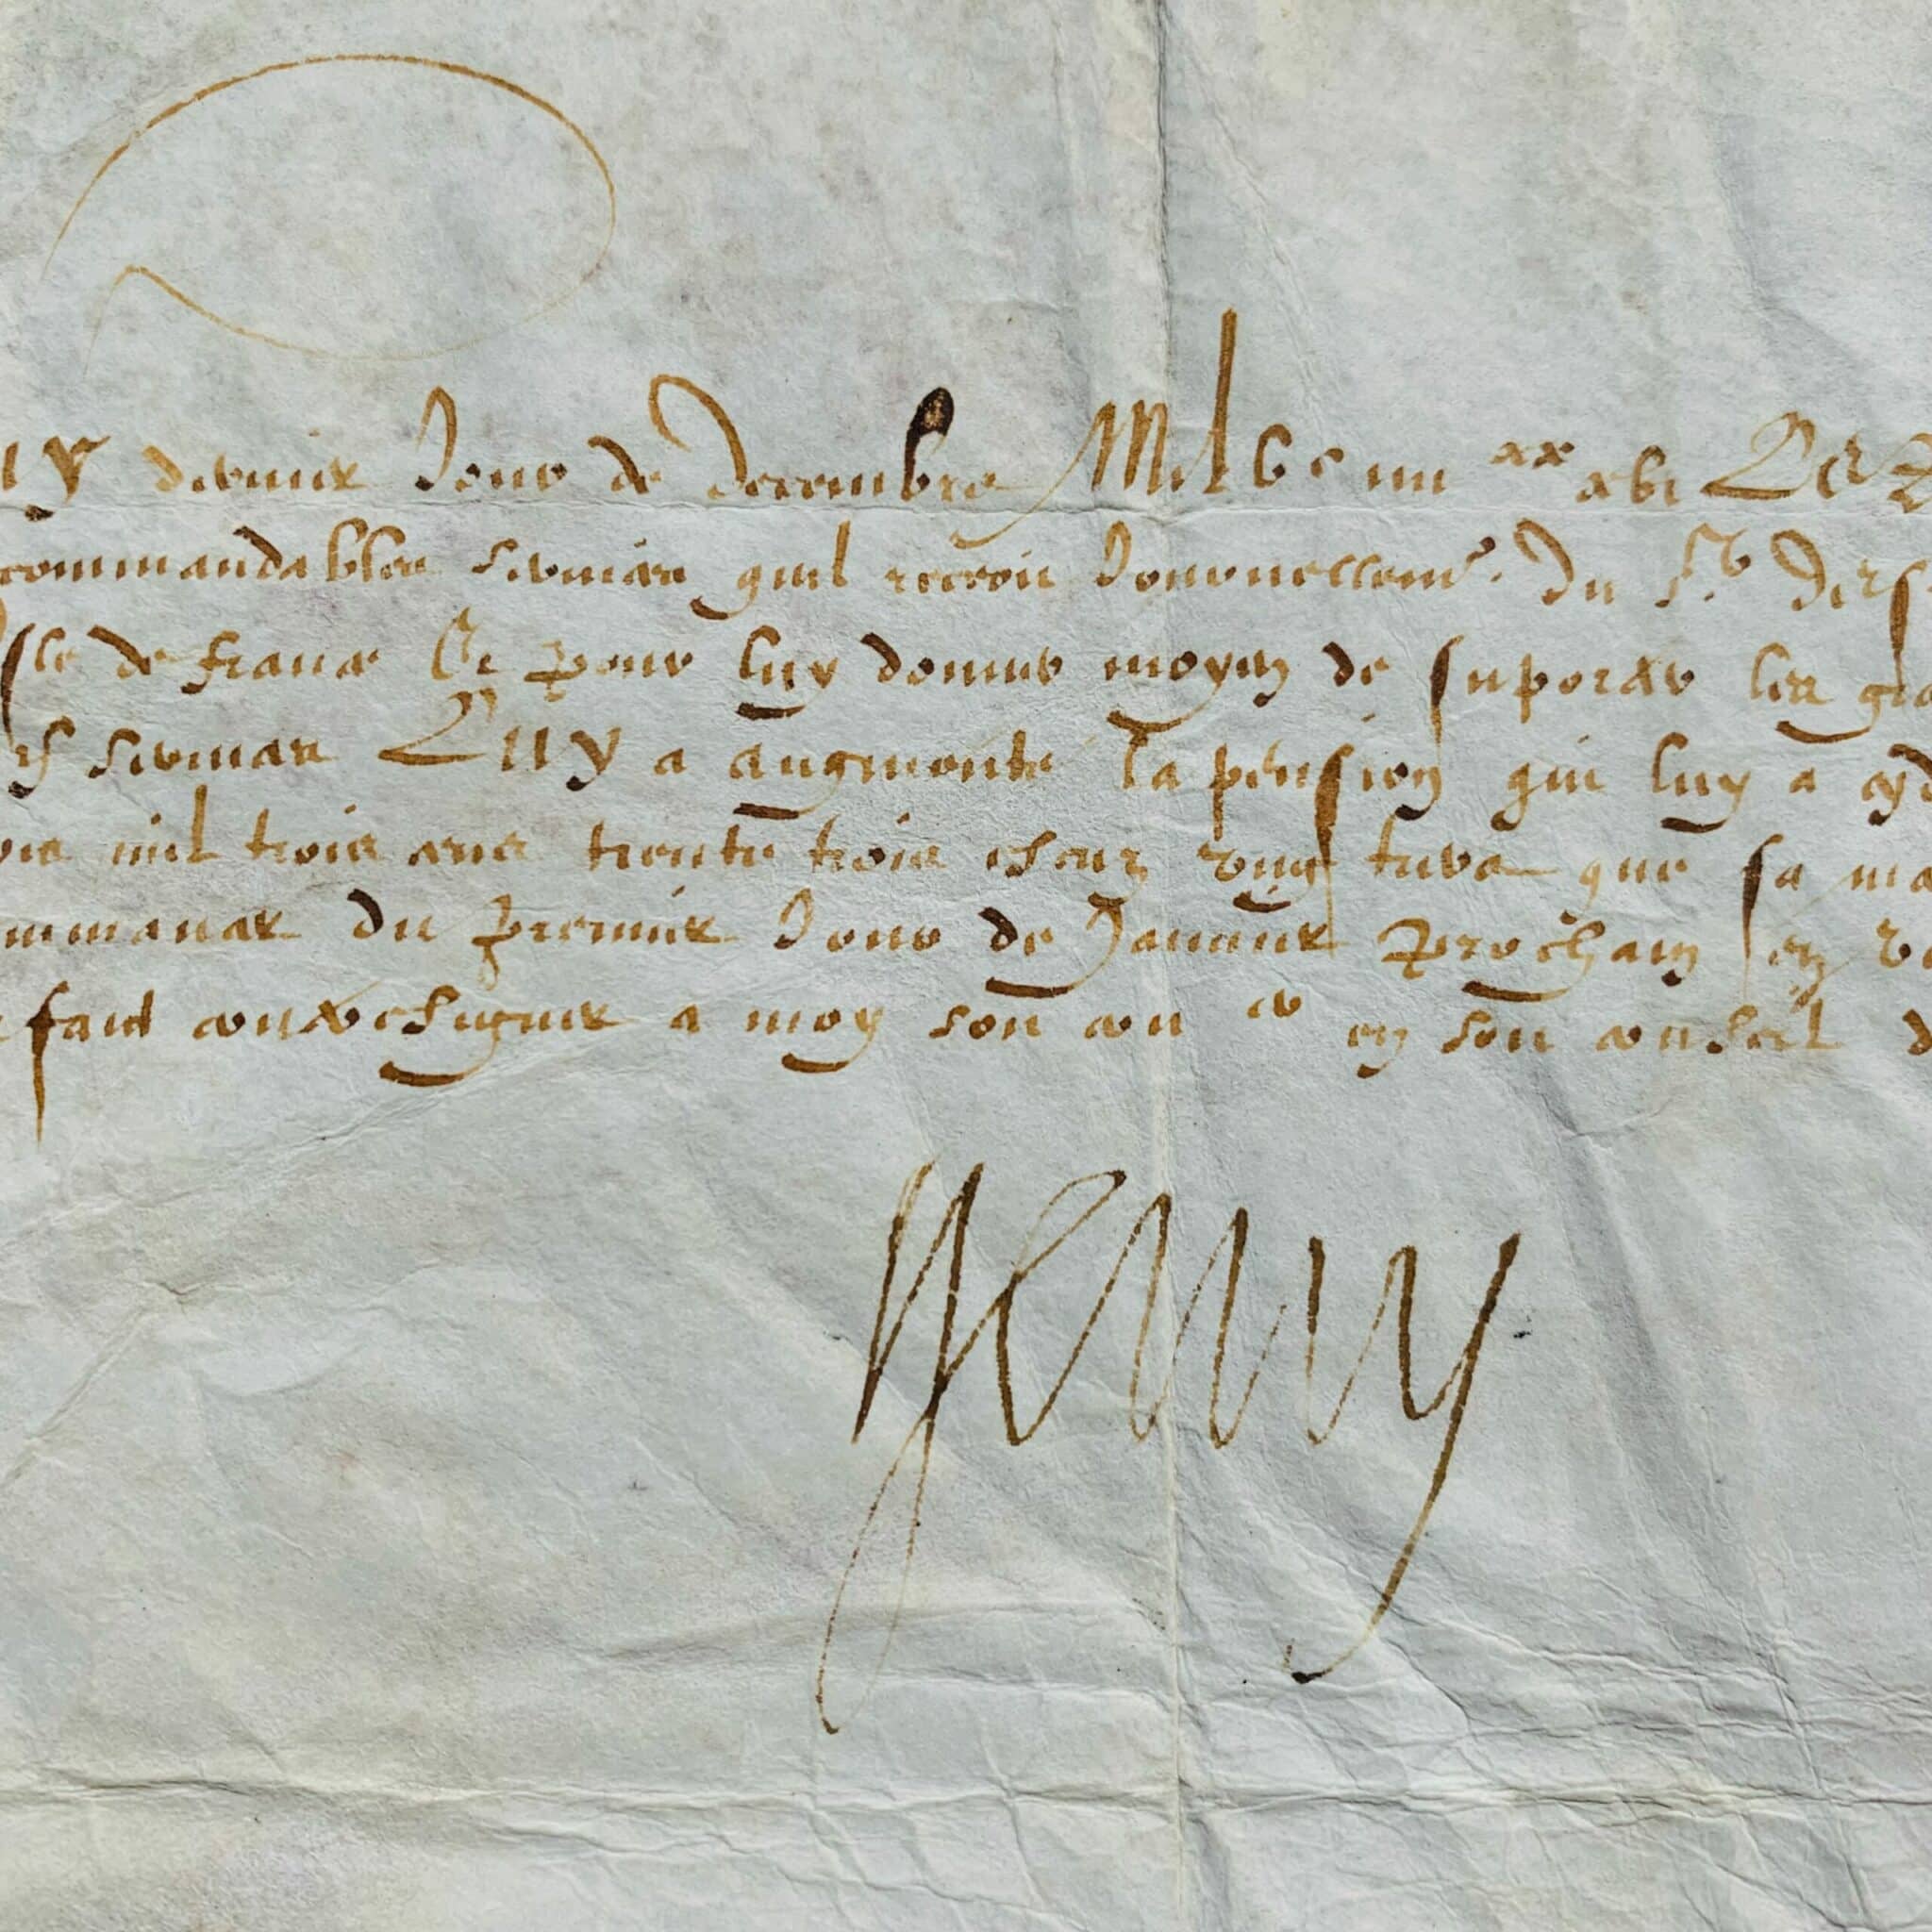 uy dernier Jour de decembre Mil Vc iiii xx xvi
commandables services quil recoit Journellemt. du Sr. de
Isle de france Et pour luy donner moyen de suporter les gra
es services Luy a augmenté la pension qui luy a
mil trois cens trente trois escuz vingt que sa ma
mmancer du premier Jour de Janvier prochain en
faict contresigner a moy son coner en son conseil d
Henry